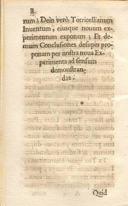 rum; Dein verò Torricellianum
Inventum, eiusque novum ex-
perimentum exponam; Et de-
mum Conclusiones desuper pro-
ponam per nostra nova Ex-
perimenta ad sensum
demonstran-
das.
Quid